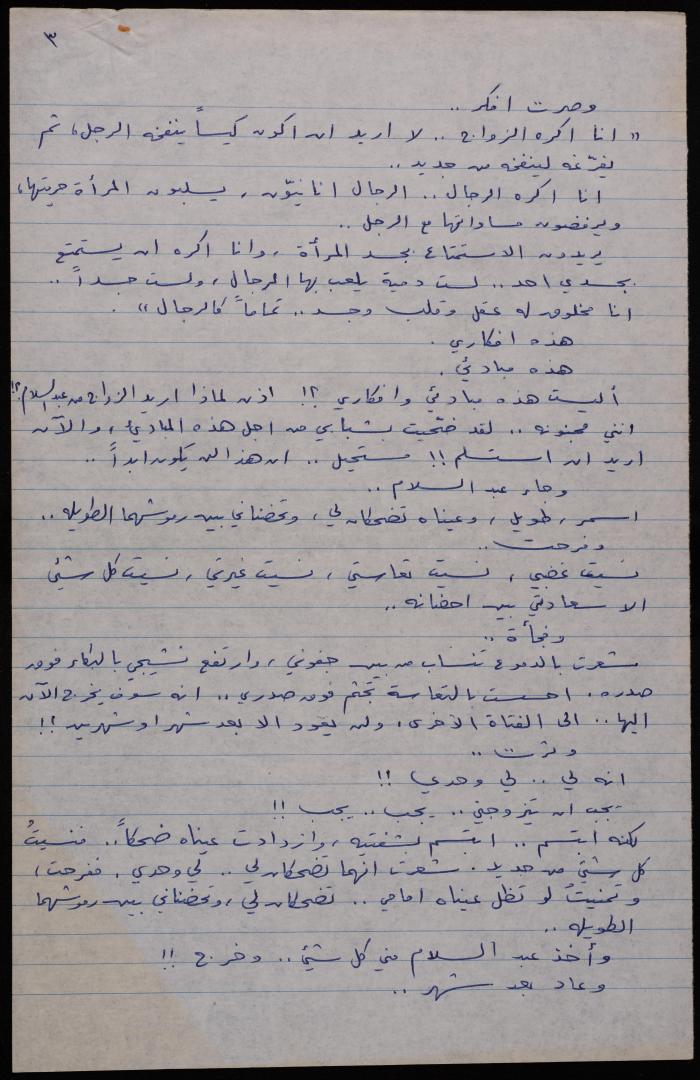 ٣
وصرت افكر ..
" انا اكره الزواج .. لا اريد ان اكون كيساً ينفخه الرجل، ثم
يفرّغه لينفخه من جديد ..
انا اكره الرجال .. الرجال انانيّون، يسلبون المرأة حريتها،
ويرفضون مساواتها مع الرجل ..
يريدون الاستمتاع بجسد المرأة، وانا اكره ان يستمتع
بجسدي احد .. لست دمية يلعب بها الرجال، ولست جسداً ..
انا مخلوق له عقل وقلب وجسد .. تماماً كالرجال " .
هذه افكاري .
هذه مبادئي .
أليست هذه مبادئي وافكاري ؟! اذن لماذا اريد الزواج من عبد السلام ؟!
انني مجنونه .. لقد ضحّيت بشبابي من اجل هذه المبادئ، والآن
اريد ان استسلم !! مستحيل .. ان هذا لن يكون ابداً ..
وجاء عبد السلام ..
اسمر، طويل، وعيناه تضحكان لي، وتحضناني بين رموشهما الطويله ..
وفرحت ..
نسيت غضبي، نسيت تعاستي، نسيت غيرتي، نسيت كل شيئ
الا سعادتي بين احضانه ..
وفجأة ..
شعرت بالدموع تنساب من بين جفوني، وارتفع نشيجي بالبكاء فوق
صدره . احسست بالتعاسة تجثم فوق صدري .. انه سوف يخرج الآن
اليها .. الى الفتاة الأخرى، ولن يعود الا بعد شهر او شهرين !!
وثرت ..
انه لي .. لي وحدي !!
يجب ان يتزوجني .. يجب .. يجب !!
لكنه ابتسم .. ابتسم بشفتيه، وازدادت عيناه ضحكاً .. فنسيتُ
كل شيئ من جديد . شعرت انهما تضحكان لي .. لي وحدي . ففرحت،
وتمنيتُ لو تظل عيناه امامي .. تضحكان لي، وتحضناني بين رموشهما
الطويله ..
وأخذ عبد السلام مني كل شيئ .. وخرج !!
وعاد بعد شهر ..